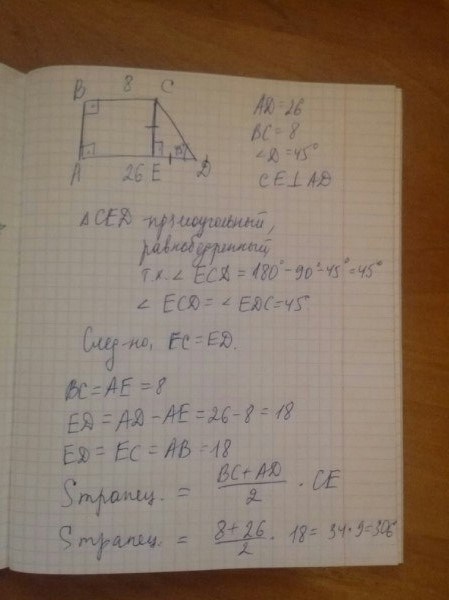 8
B C
A 26 E D
45°
AD=26
BC=8
∠D=45°
CE⊥AD
△CED -прямоугольный,
равнобедренный
т.к. ∠ ECD = 180°-90°-45°=45°
∠ ECD = ∠ EDC=45°
След-но, EC=ED.
BC=AE=8
ED=AD-AE=26-8=18
ED=EC=AB=18
Sтрапец. = (BC+AD)/2 · CE
Sтрапец. = (8+26)/2 · 18= 34·9=306